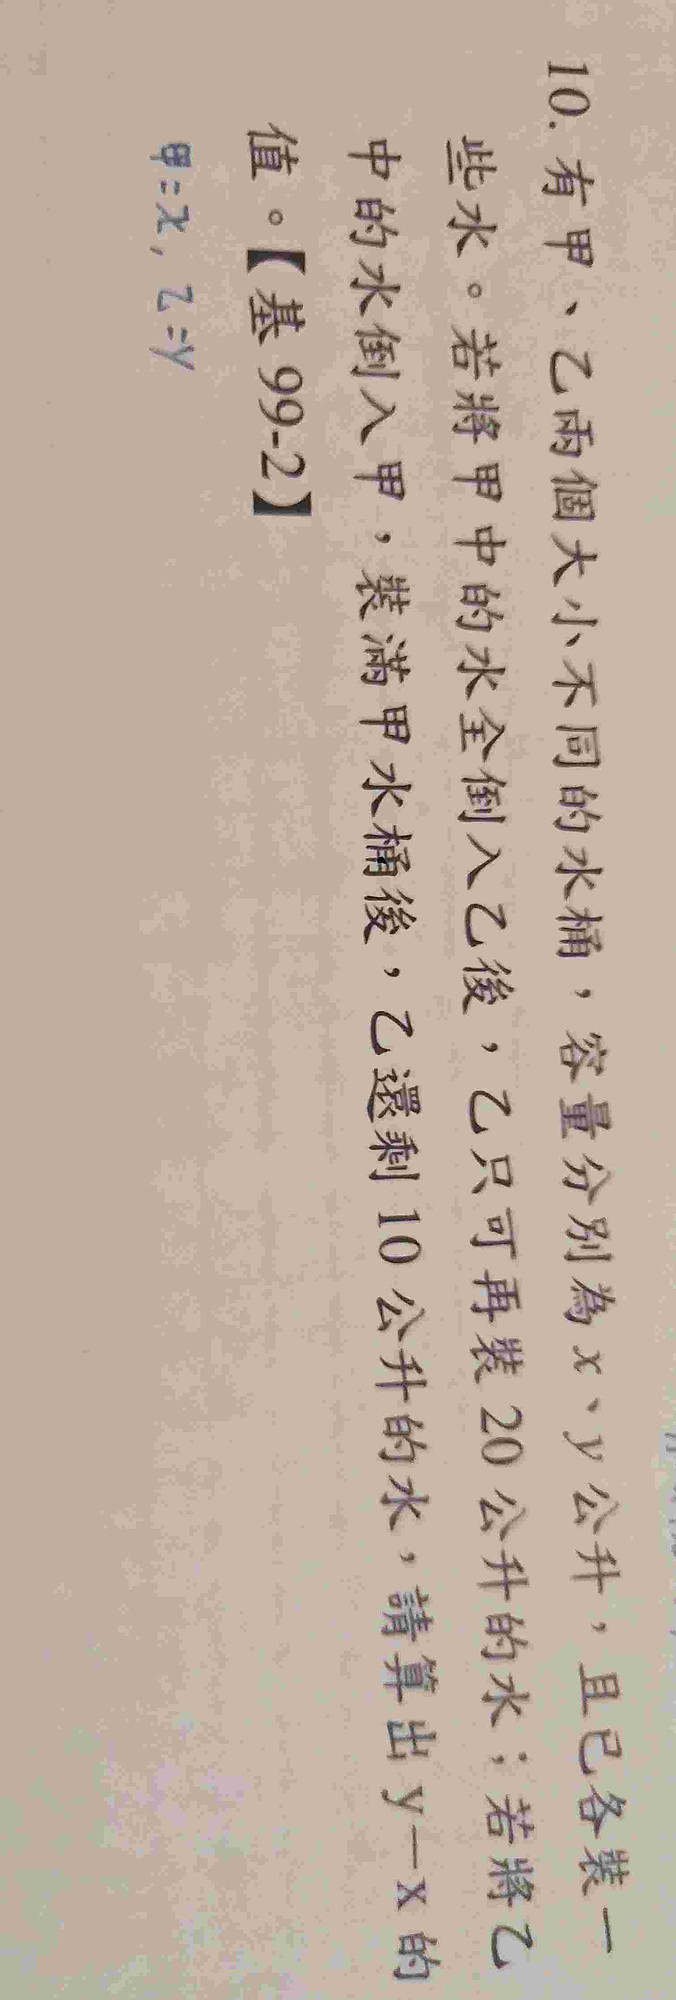 10. 有甲、乙兩個大小不同的水桶，容量分別為 x、y 公升，且已各裝一
些水。若將甲中的水全倒入乙後，乙只可再裝 20 公升的水；若將乙
中的水倒入甲，裝滿甲水桶後，乙還剩 10 公升的水，請算出 y－x 的
值。【基 99-2】
甲=x, 乙=y